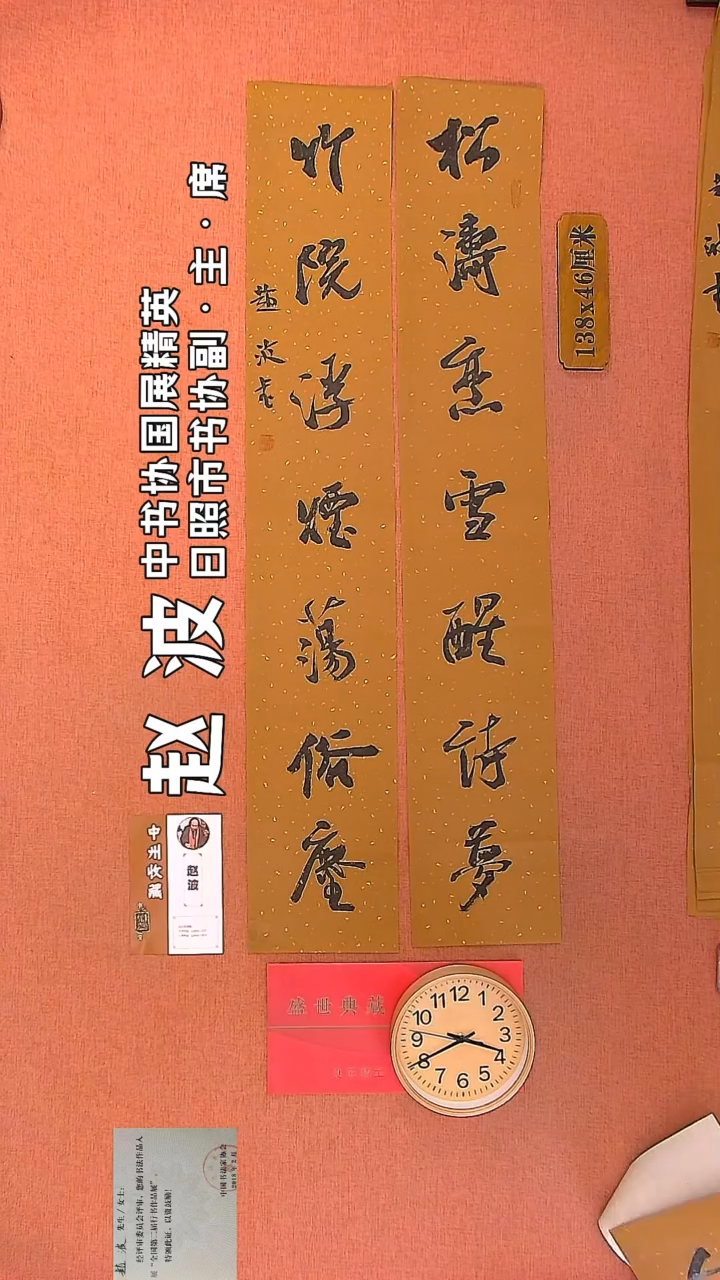 松濤煮雪醒詩夢
竹院浮煙蕩俗塵
趙波書
138x46厘米
赵波
中书协国展精英
日照市书协副·主·席
赵波
盛世典藏
12
1
2
3
4
5
6
7
8
9
10
11
趙波 先生／女士：
经评审委员会评审，您的书法作品入
展“全国第二届行书作品展”。
特颁此证，以资鼓励！
中国书法家协会